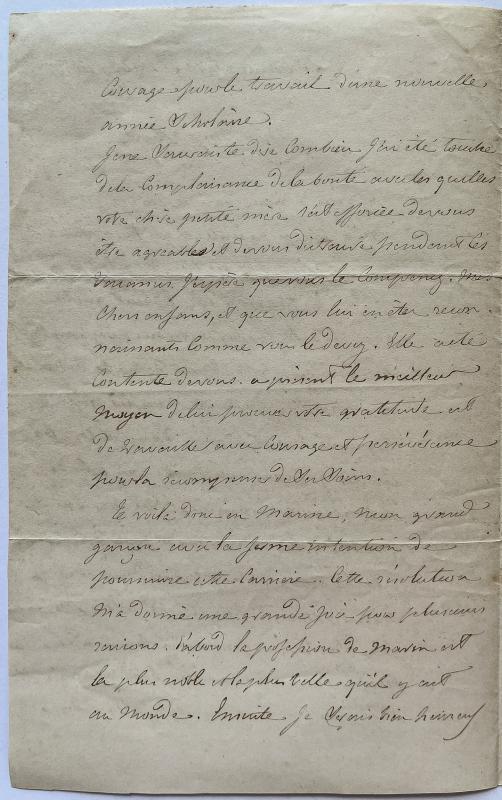 Courage pour le travail d'une nouvelle
année Scholaire.
Je ne Saurais te dire Combien J'ai été touché
de la Complaisance de la bonté avec les quelles
votre chère petite mère s'est efforcée de vous
être agréable, et de vous distraire pendant les
vacances J'espère que vous le Comprenez. Mes
Chers enfans, et que vous lui en êtes recon
naissants Comme vous le devez. Elle a été
Contente de vous. a présent le meilleur
moyen de lui prouver votre gratitude est
de travailler avec Courage et persévérance
pour la récompenser de Ses Soins.
te voilà donc en Marine, mon grand
garçon avec la ferme intention de
poursuivre cette Carrière. Cette résolution
m'a donné une grande Joie pour plusieurs
raisons. d'abord la profession de Marin est
la plus noble et la plus belle qu'il y ait
au Monde. Ensuite Je Serais bien heureux